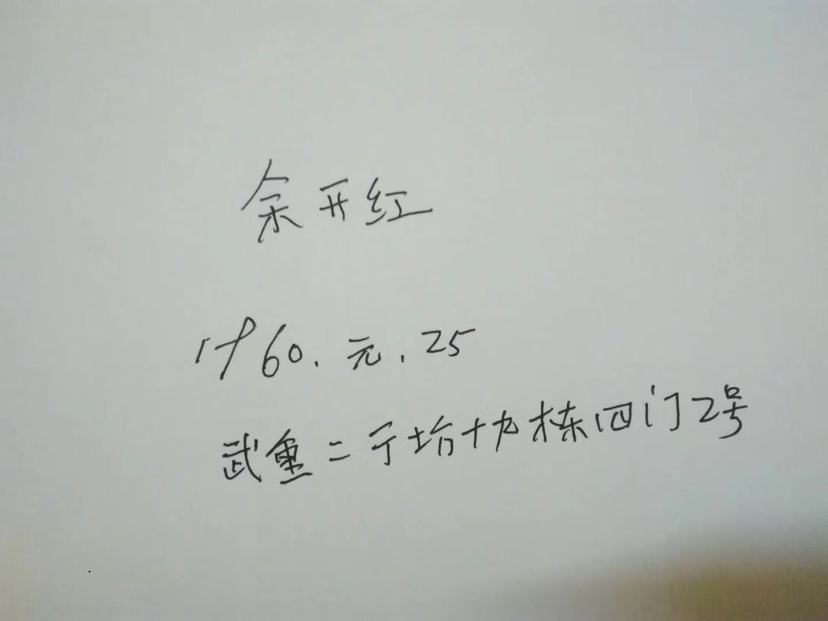 余开红
1960.元.25
武重二亍坊十九栋四门2号